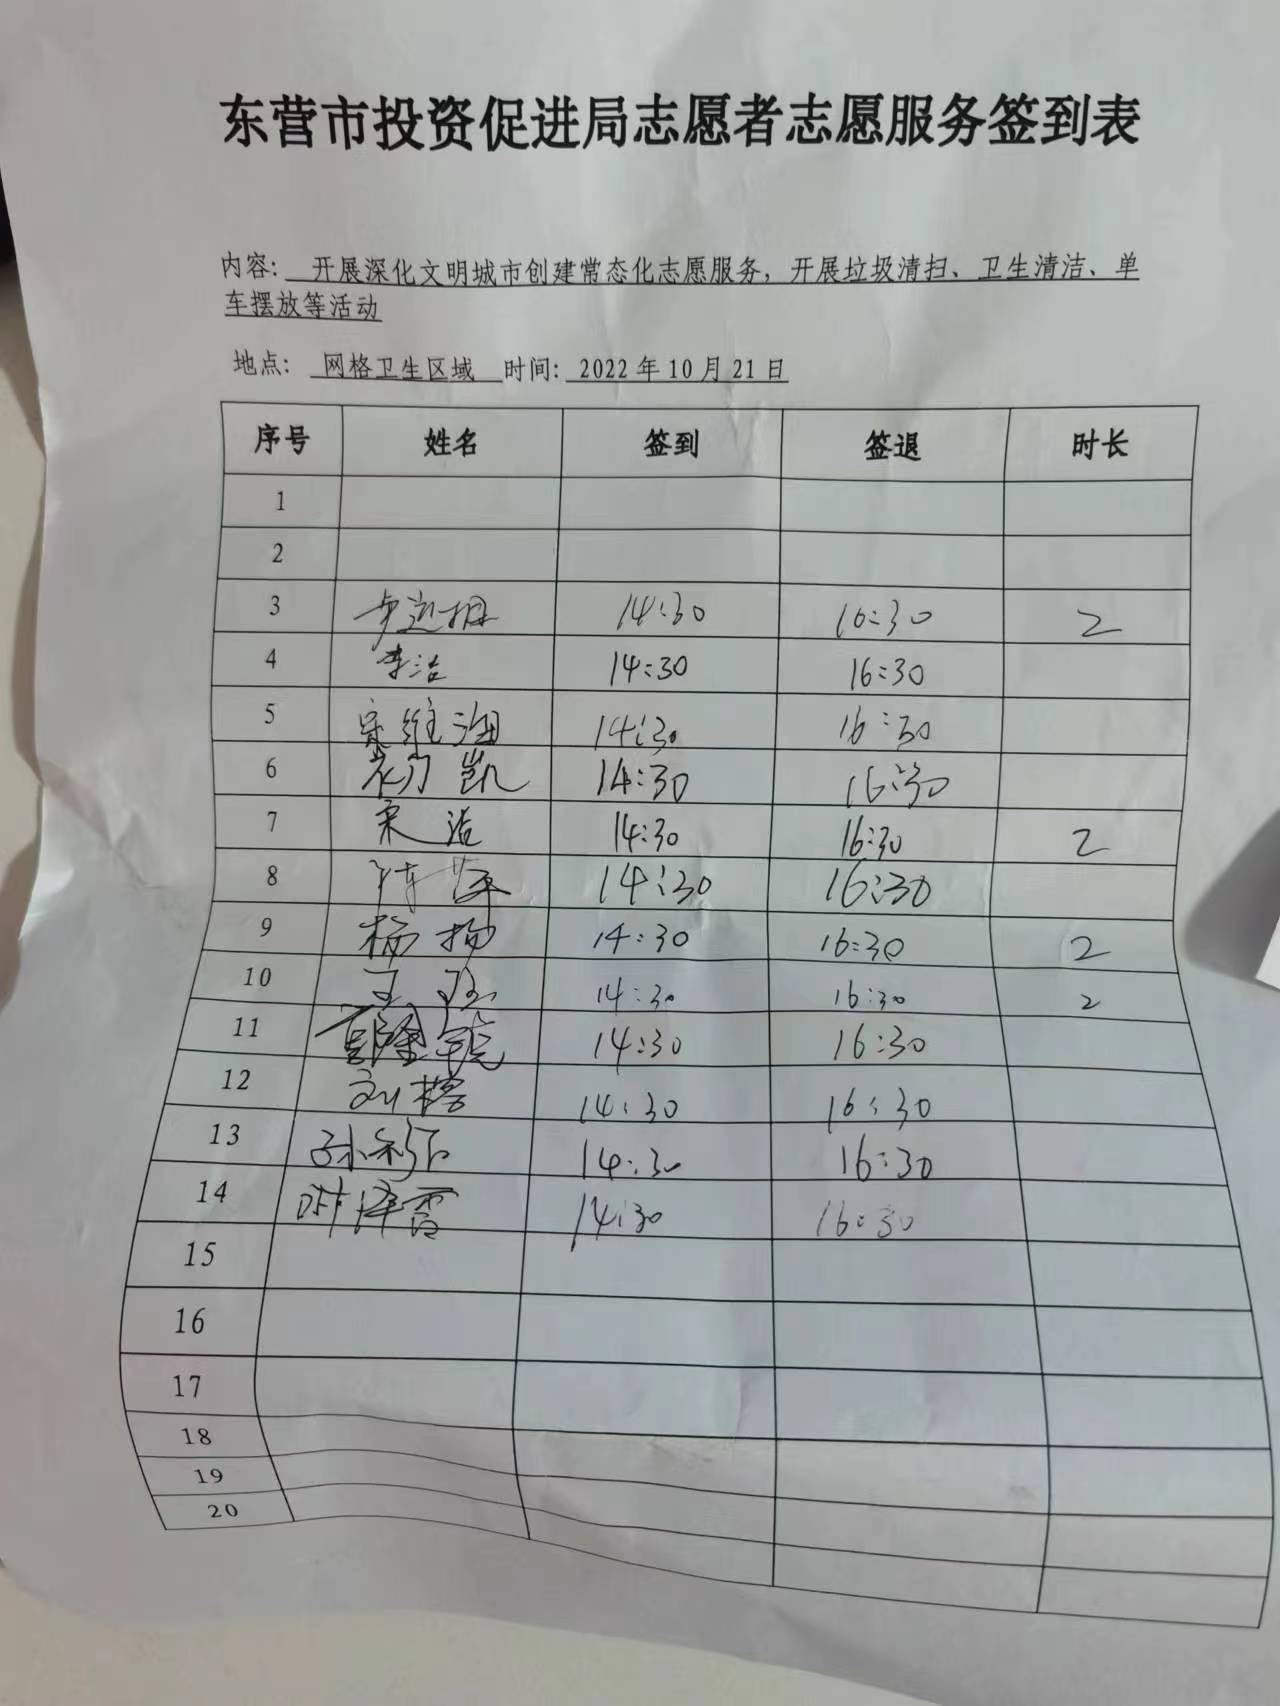 东营市投资促进局志愿者志愿服务签到表
内容: 开展深化文明城市创建常态化志愿服务，开展垃圾清扫、卫生清洁、单
车摆放等活动
地点: 网格卫生区域 时间: 2022年10月21日
序号 姓名 签到 签退 时长
1
2
3 14:30 16:30 2
4 李洁 14:30 16:30
5 宋维海 14:30 16:30
6 凯 14:30 16:30
7 宋洁 14:30 16:30 2
8 14:30 16:30
9 杨扬 14:30 16:30 2
10 王 14:30 16:30 2
11 14:30 16:30
12 刘 14:30 16:30
13 孙 14:30 16:30
14 14:30 16:30
15
16
17
18
19
20